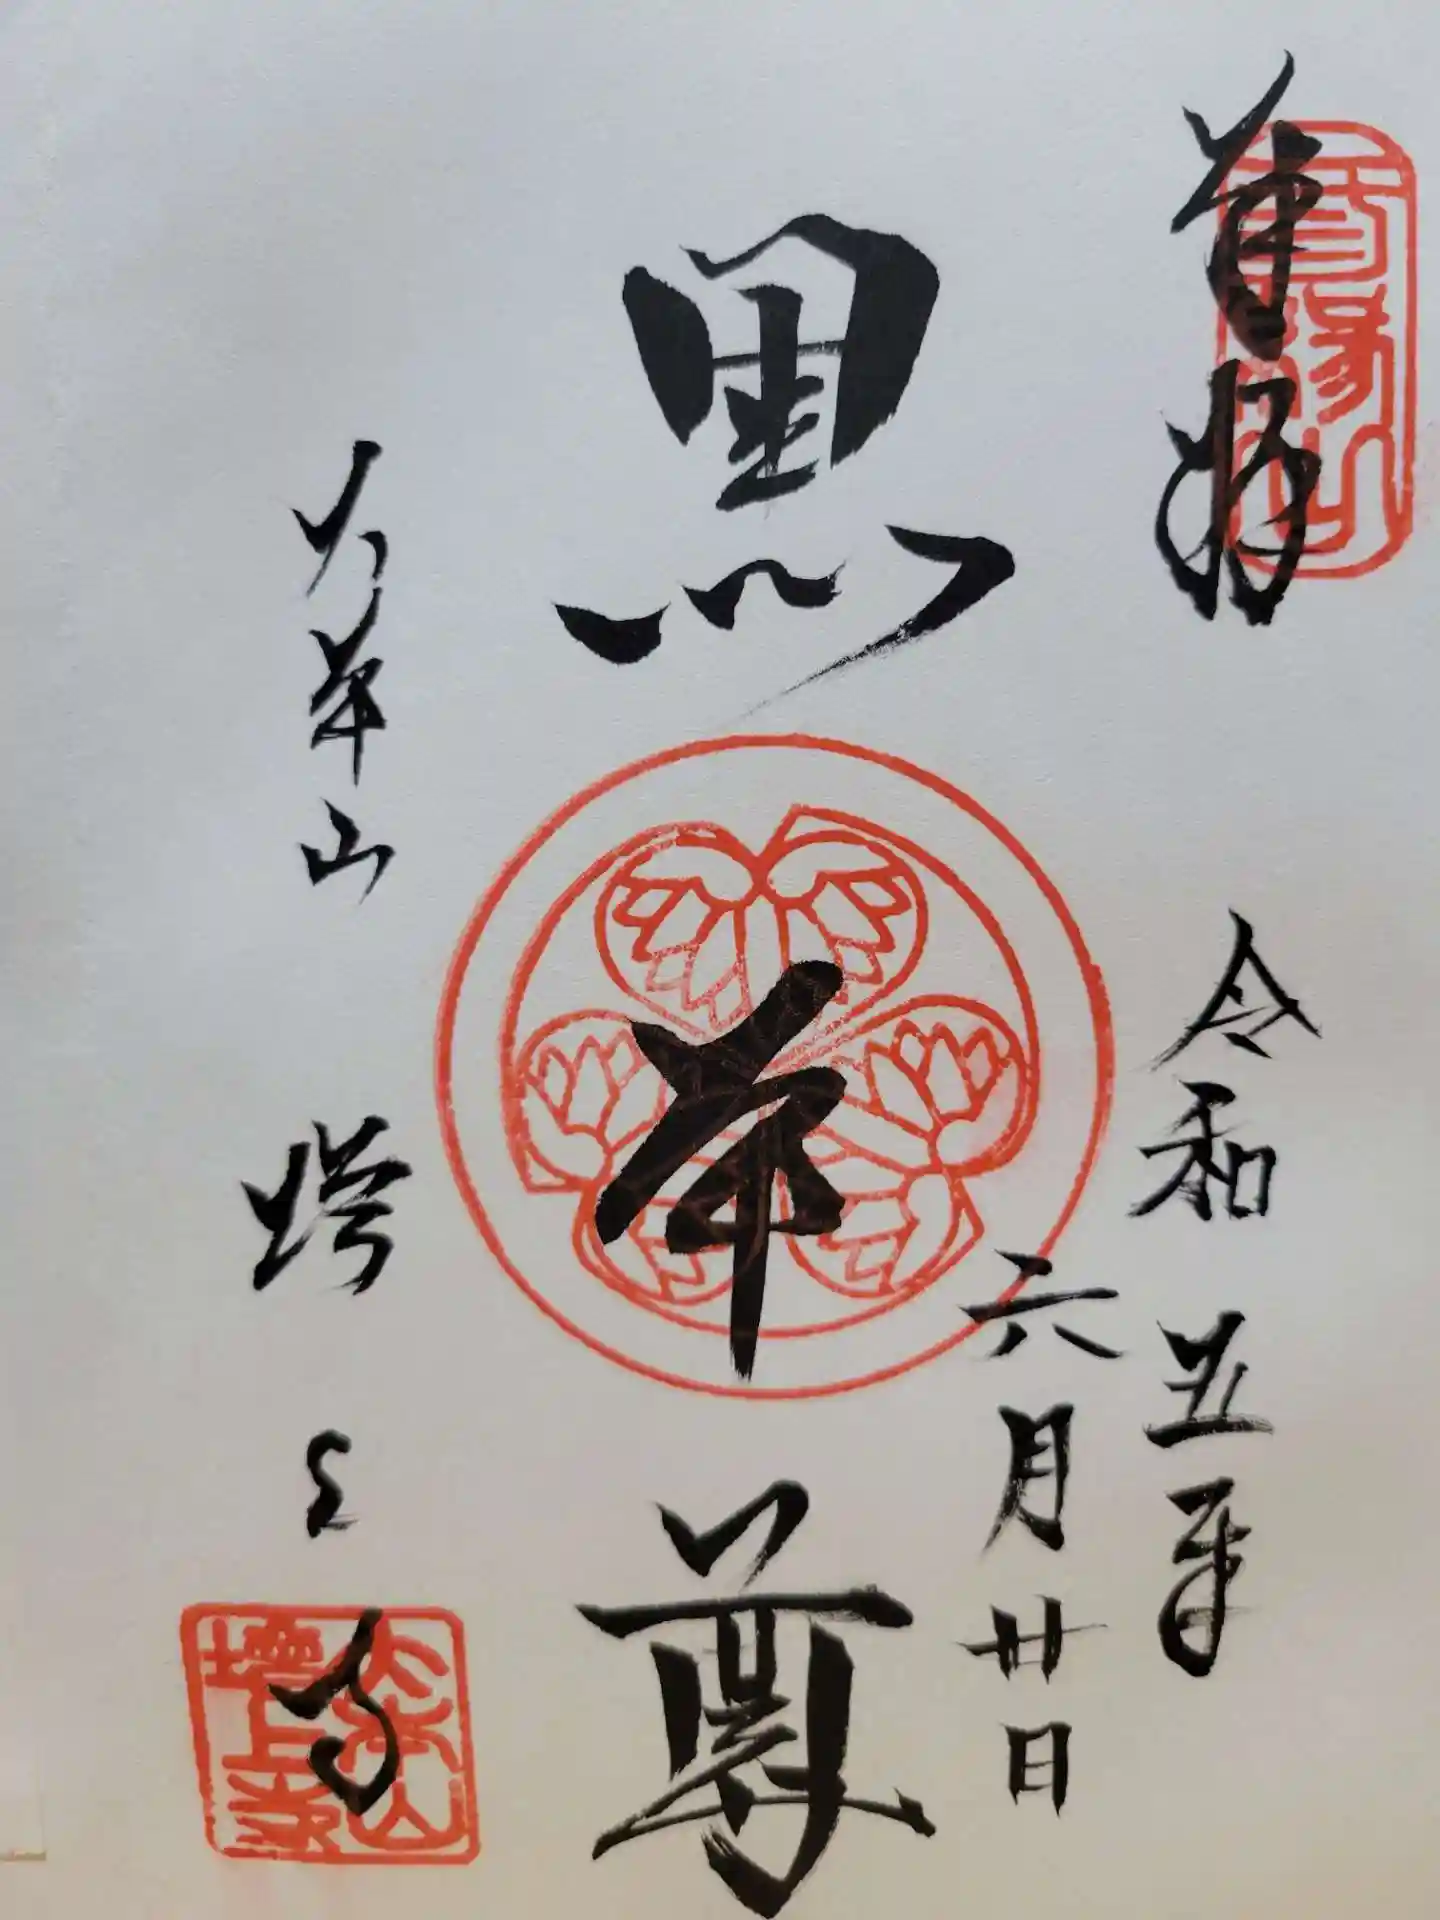 奉拝
令和五年
六月廿日
黒本尊
大本山
増上寺
大本山
増上寺